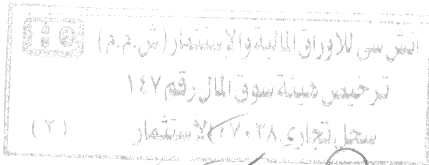 للاوراق المالية والإستثمار (ش.م.م)
ترخيص هيئة سوق المال رقم ١٤٧
سجل تجارى ٤٧٠٣٨ الاستثمار (٢)